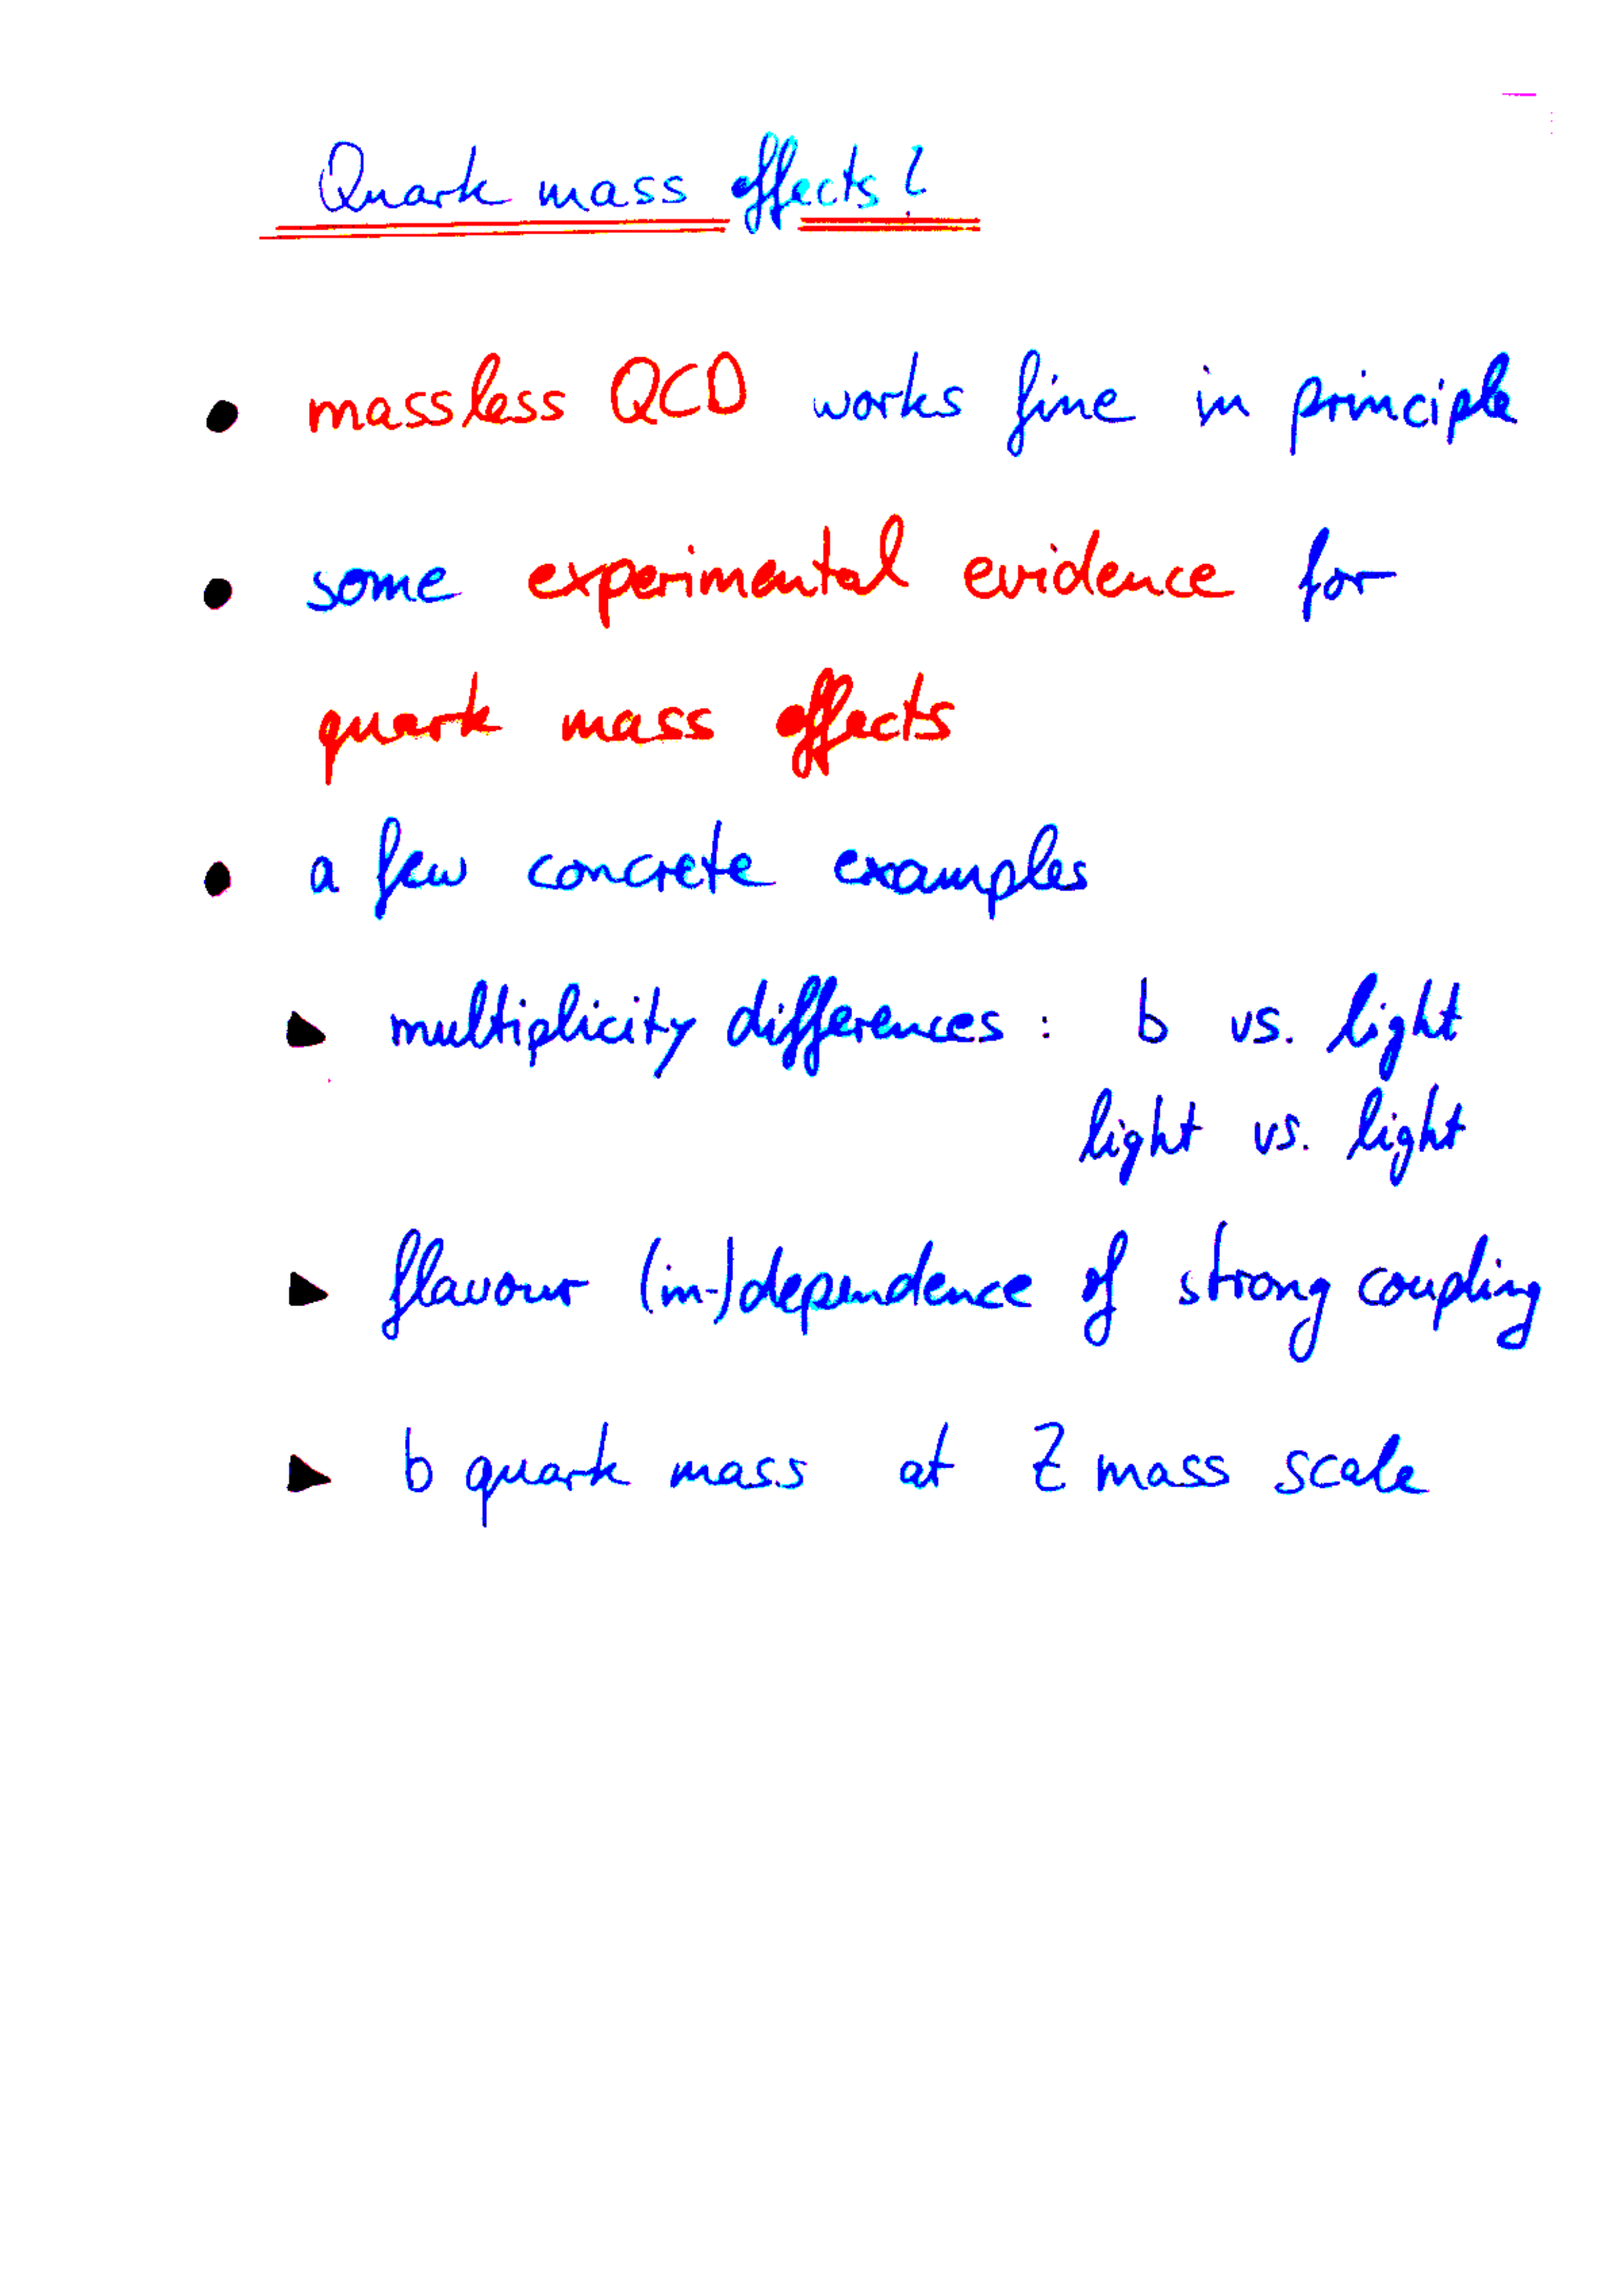 Quark mass effects?
• massless QCD works fine in principle
• some experimental evidence for
quark mass effects
• a few concrete examples
▶ multiplicity differences : b vs. light
light vs. light
▶ flavour (in-)dependence of strong coupling
▶ b quark mass at Z mass scale